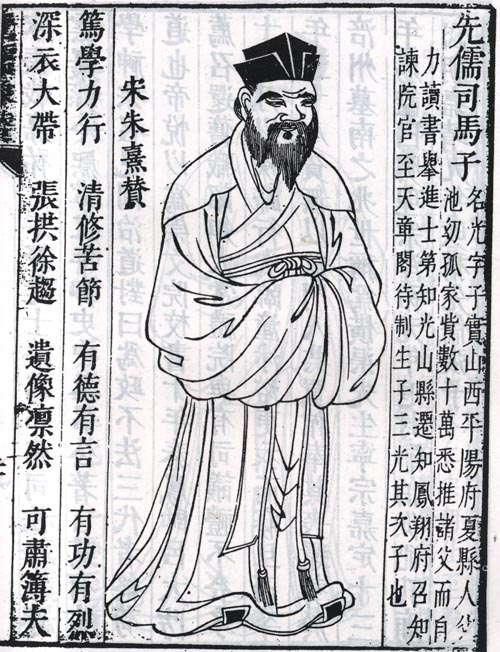 先儒司馬子
名光字子實山西平陽府夏縣人父
池幼孤家貲數十萬悉推諸父而自
力讀書舉進士第知光山縣遷知鳳翔府召知
諫院官至天章閣待制生子三光其次子也
宋朱熹賛
篤學力行 清修苦節 有德有言 有功有列
深衣大帶 張拱徐趨 遺像凛然 可肅簿夫